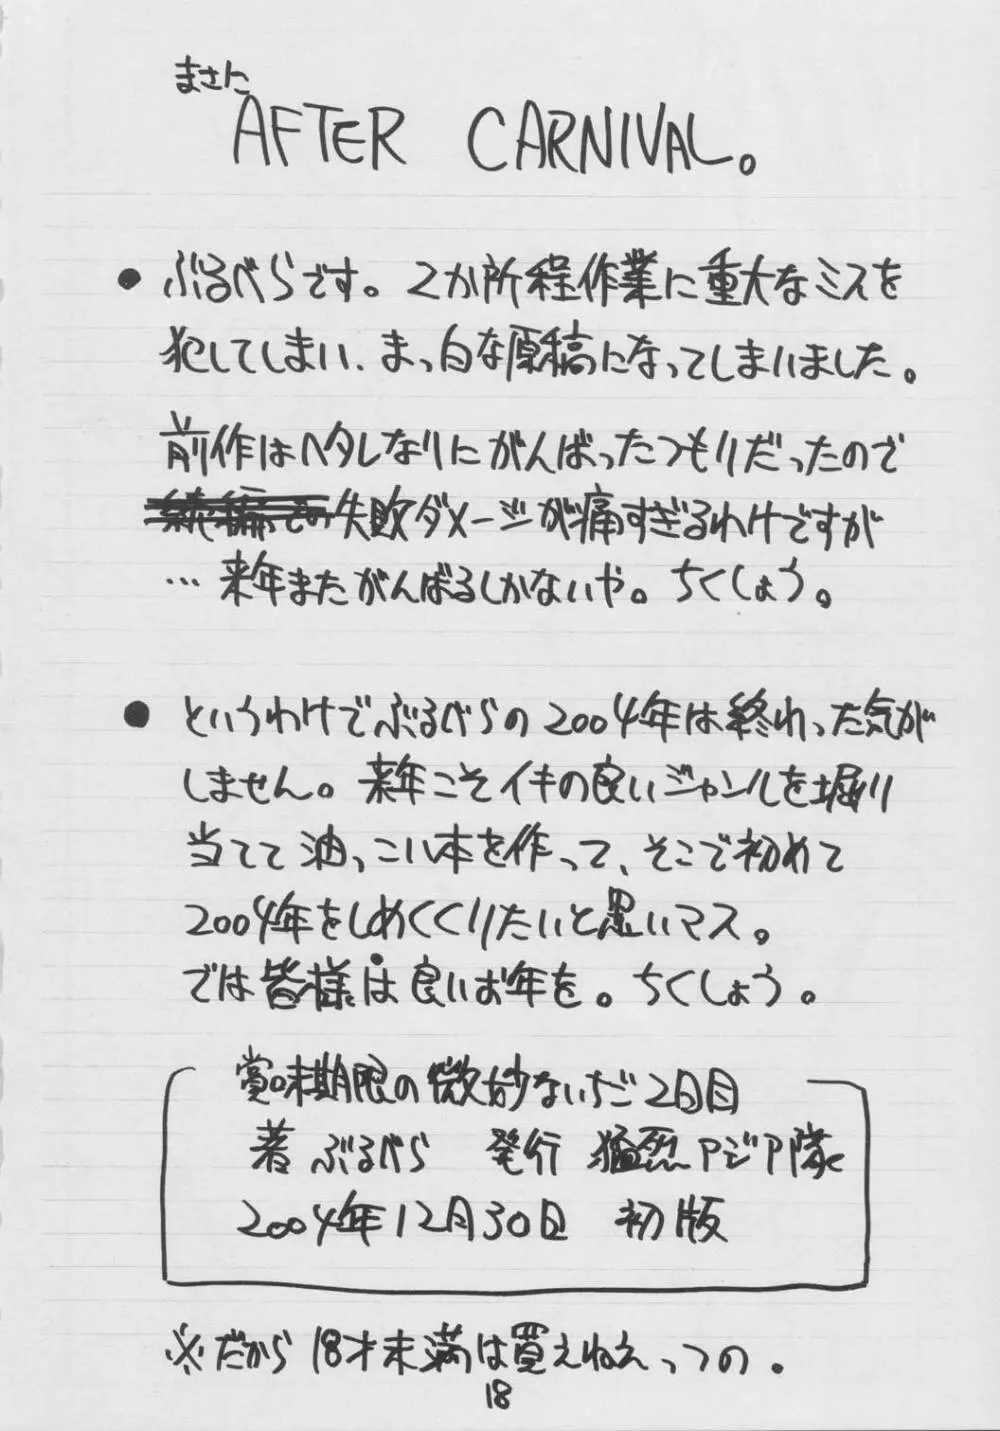 まさに
AFTER CARNIVAL。
● ぶるべらです。2か所程作業に重大なミスを
犯してしまい、まっ白な原稿になってしまいました。
前作はヘタレなりにがんばったつもりだったので
失敗ダメージが痛すぎるわけですが
… 来年またがんばるしかないや。ちくしょう。
● というわけでぶるべらの2004年は終わった気が
しません。来年こそイキの良いジャンルを堀り
当てて油っこい本を作って、そこで初めて
2004年をしめくくりたいと思いマス。
では皆様は良いお年を。ちくしょう。
賞味期限の微妙ないちご2日目
著 ぶるべら 発行 猛烈アジア隊
2004年12月30日 初版
※だから18才未満は買えねえっつの。
18